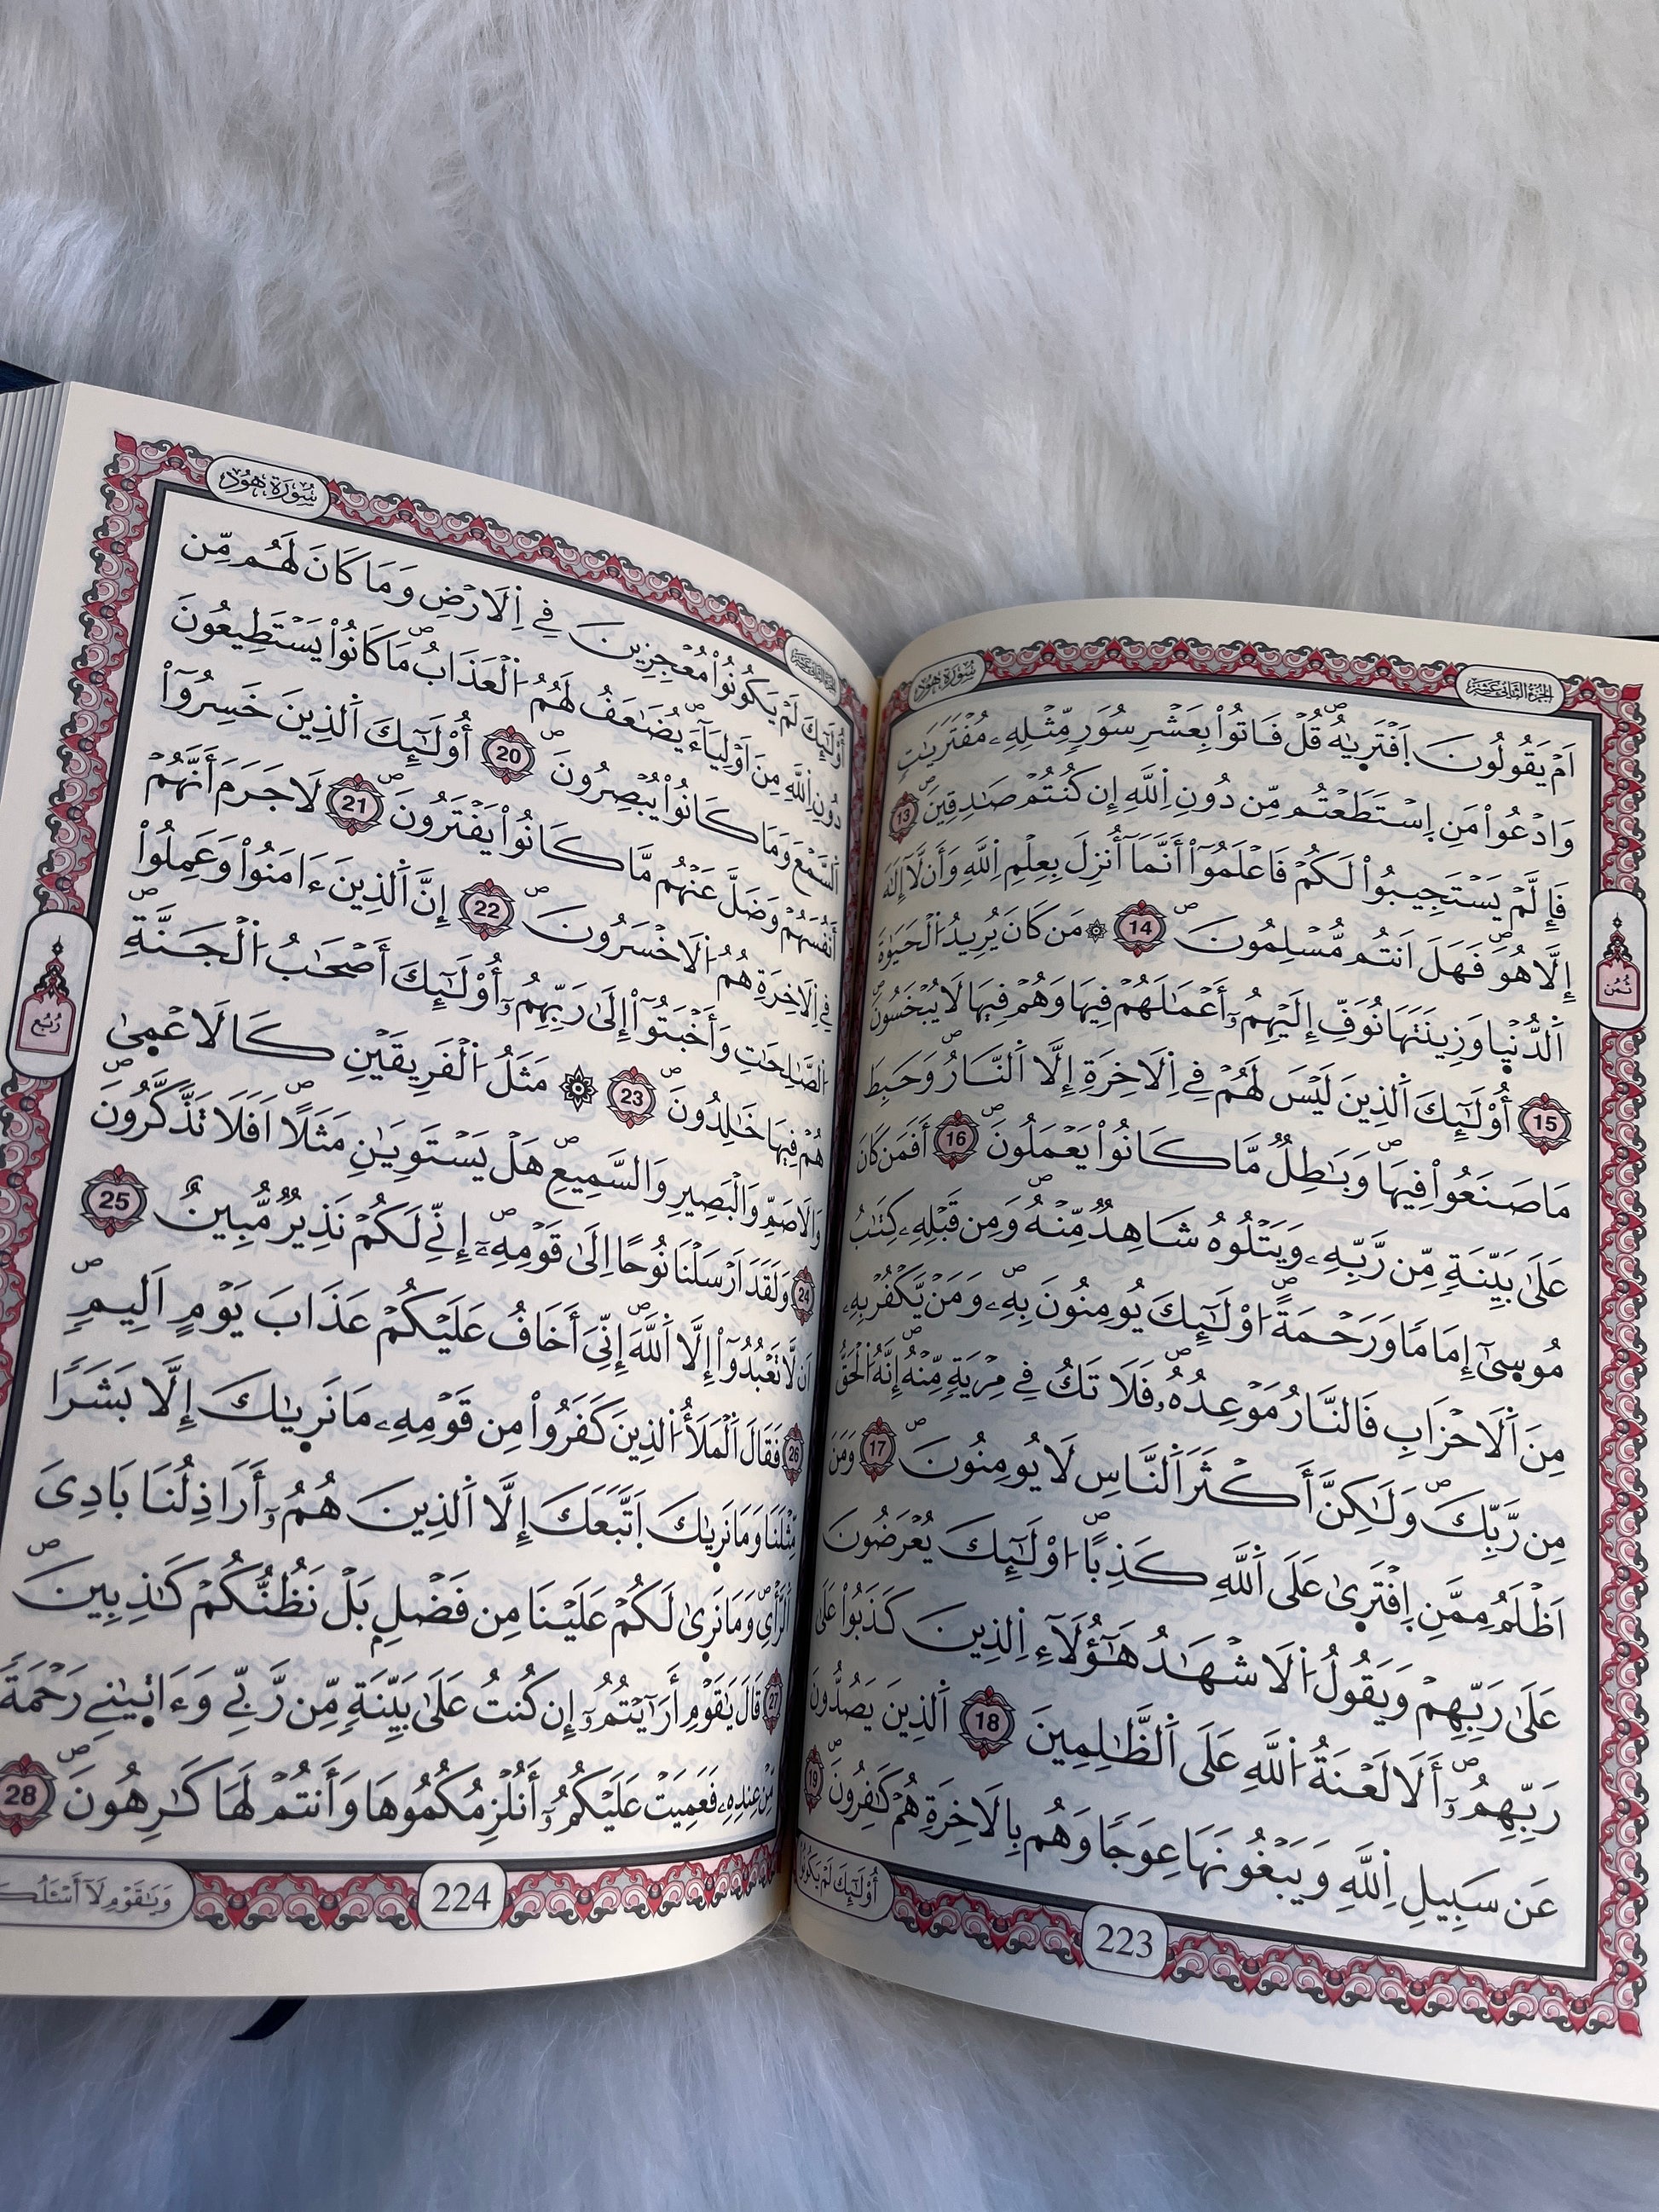 الجُزْءُ الثَّانِي عَشَرَ
سُورَةُ هُودٍ
اَمْ يَقُولُونَ اَفْتَرِىٰهُ قُلْ فَاتُواْ بِعَشْرِ سُوَرٖ مِّثْلِهِۦ مُفْتَرَيَٰتٖ
وَادْعُواْ مَنِ اِسْتَطَعْتُم مِّن دُونِ اِللَّهِ إِن كُنتُمْ صَٰدِقِينَ 13
فَإِلَّمْ يَسْتَجِيبُواْ لَكُمْ فَاعْلَمُوٓاْ أَنَّمَآ أُنزِلَ بِعِلْمِ اِللَّهِ وَأَن لَّآ إِلَٰهَ
إِلَّا هُوَ فَهَلَ اَنتُم مُّسْلِمُونَ 14 ۞ مَن كَانَ يُرِيدُ اُلْحَيَوٰةَ
اَلدُّنْيٰا وَزِينَتَهَا نُوَفِّ إِلَيْهِمُۥٓ أَعْمَٰلَهُمْ فِيهَا وَهُمْ فِيهَا لَا يُبْخَسُونَ
15 أُوْلَٰٓئِكَ اَلذِينَ لَيْسَ لَهُمْ فِي اِلَاخِرَةِ إِلَّا اَلنَّارُ وَحَبِطَ
مَا صَنَعُواْ فِيهَا وَبَٰطِلٞ مَّا كَانُواْ يَعْمَلُونَ 16 أَفَمَن كَانَ
عَلَىٰ بَيِّنَةٖ مِّن رَّبِّهِۦ وَيَتْلُوهُ شَاهِدٞ مِّنْهُ وَمِن قَبْلِهِۦ كِتَٰبُ
مُوسِىٰٓ إِمَامٗا وَرَحْمَةً اُوْلَٰٓئِكَ يُومِنُونَ بِهِۦ وَمَنْ يَّكْفُرْ بِهِۦ
مِنَ اَلَاحْزَابِ فَالنَّارُ مَوْعِدُهُۥ فَلَا تَكُ فِي مِرْيَةٖ مِّنْهُ إِنَّهُ اُلْحَقُّ
مِن رَّبِّكَ وَلَٰكِنَّ أَكْثَرَ اَلنَّاسِ لَا يُومِنُونَ 17 وَمَنَ
اَظْلَمُ مِمَّنِ اِفْتَرِىٰ عَلَى اَللَّهِ كَذِباً اُوْلَٰٓئِكَ يُعْرَضُونَ
عَلَىٰ رَبِّهِمْ وَيَقُولُ اُلَاشْهَٰدُ هَٰٓؤُلَآءِ اِلذِينَ كَذَبُواْ عَلَىٰ
رَبِّهِمُۥٓ أَلَا لَعْنَةُ اُللَّهِ عَلَى اَلظَّٰلِمِينَ 18 اَلذِينَ يَصُدُّونَ
عَن سَبِيلِ اِللَّهِ وَيَبْغُونَهَا عِوَجٗا وَهُم بِالَاخِرَةِ هُمْ كَٰفِرُونَ 19
أُوْلَٰٓئِكَ لَمْ يَكُونُواْ
223
ثُمُن
سُورَةُ هُودٍ
أُوْلَٰٓئِكَ لَمْ يَكُونُواْ مُعْجِزِينَ فِي اِلَارْضِ وَمَا كَانَ لَهُم مِّن
دُونِ اِللَّهِ مِنَ اَوْلِيَآءَ يُضَٰعَفُ لَهُمُ اُلْعَذَابُ مَا كَانُواْ يَسْتَطِيعُونَ
اَلسَّمْعَ وَمَا كَانُواْ يُبْصِرُونَ 20 أُوْلَٰٓئِكَ اَلذِينَ خَسِرُوٓاْ
أَنفُسَهُمْ وَضَلَّ عَنْهُم مَّا كَانُواْ يَفْتَرُونَ 21 لَا جَرَمَ أَنَّهُمْ
فِي اِلَاخِرَةِ هُمُ اُلَاخْسَرُونَ 22 إِنَّ اَلذِينَ ءَامَنُواْ وَعَمِلُواْ
اُلصَّٰلِحَٰتِ وَأَخْبَتُوٓاْ إِلَىٰ رَبِّهِمُۥٓ أُوْلَٰٓئِكَ أَصْحَٰبُ اُلْجَنَّةِ
هُمْ فِيهَا خَٰلِدُونَ 23 ۞ مَثَلُ اُلْفَرِيقَيْنِ كَالَاعْمِىٰ
وَالَاصَمِّ وَالْبَصِيرِ وَالسَّمِيعِ هَلْ يَسْتَوِيَٰنِ مَثَلًا اَفَلَا تَذَّكَّرُونَ
24 وَلَقَدَ اَرْسَلْنَا نُوحًا اِلَىٰ قَوْمِهِۦٓ إِنِّي لَكُمْ نَذِيرٞ مُّبِينٌ 25
اَن لَّا تَعْبُدُوٓاْ إِلَّا اَللَّهَ إِنِّيَ أَخَافُ عَلَيْكُمْ عَذَابَ يَوْمٍ اَلِيمٖ
26 فَقَالَ اَلْمَلَأُ اُلذِينَ كَفَرُواْ مِن قَوْمِهِۦ مَا نَرِىٰكَ إِلَّا بَشَرٗا
مِّثْلَنَا وَمَا نَرِىٰكَ اَتَّبَعَكَ إِلَّا اَلذِينَ هُمُۥٓ أَرَاذِلُنَا بَادِيَ
اَلرَّأْيِ وَمَا نَرِىٰ لَكُمْ عَلَيْنَا مِن فَضْلِۢ بَلْ نَظُنُّكُمْ كَٰذِبِينَ
27 قَالَ يَٰقَوْمِ أَرَٰٓيْتُمُۥٓ إِن كُنتُ عَلَىٰ بَيِّنَةٖ مِّن رَّبِّي وَءَاتِىٰنِي رَحْمَةٗ
مِّنْ عِندِهِۦ فَعَمِيَتْ عَلَيْكُمُۥٓ أَنُلْزِمُكُمُوهَا وَأَنتُمْ لَهَا كَٰرِهُونَ 28
224
وَيَٰقَوْمِ لَآ أَسْـَٔلُكُ
رُبُع